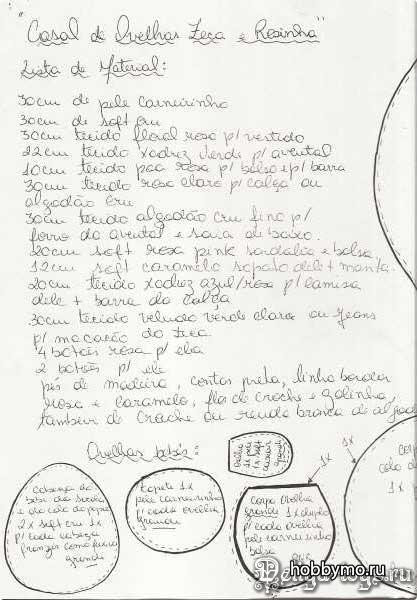 "Casal de Ovelhas Zeca e Rosinha"
Lista de Material:
30cm de pele carneirinho
30cm de soft cru
30cm tecido floral rosa p/ vestido
22cm tecido xadrez verde p/ avental
10cm tecido poa rosa p/ bolso e p/ barra
30cm tecido rosa claro p/ calça ou
algodão cru
30cm tecido algodão cru fino p/
forro do avental e saia de baixo.
20cm soft rosa pink sandalia e bolsa
12cm soft caramelo sapato dele + manta.
20cm tecido xadrez azul/rosa p/ camisa
dele + barra da calça
30cm tecido veludo verde claro ou jeans
p/ macacão do Zeca
4 botões rosa p/ ela
2 botões p/ ele
pés de madeira, contas preta, linha bordar
rosa e caramelo, flor de croche e golinha,
tambem de croche ou renda branca de algod
Ovelhas bebês:
1x
1x
Cabeça do
bebê da
e do colo do papai
2x soft cru 1x
p/ cada cabeça
franzir como fuxico
grande
1x
pele carneirinho
p/ cada ovelha
grande
Orelha
Corpo Ovelha
grande 1x duplo
p/ cada ovelha
pele carneirinho
bolsa
corpo
1x
hobbymo.ru
Pengatoys.ru